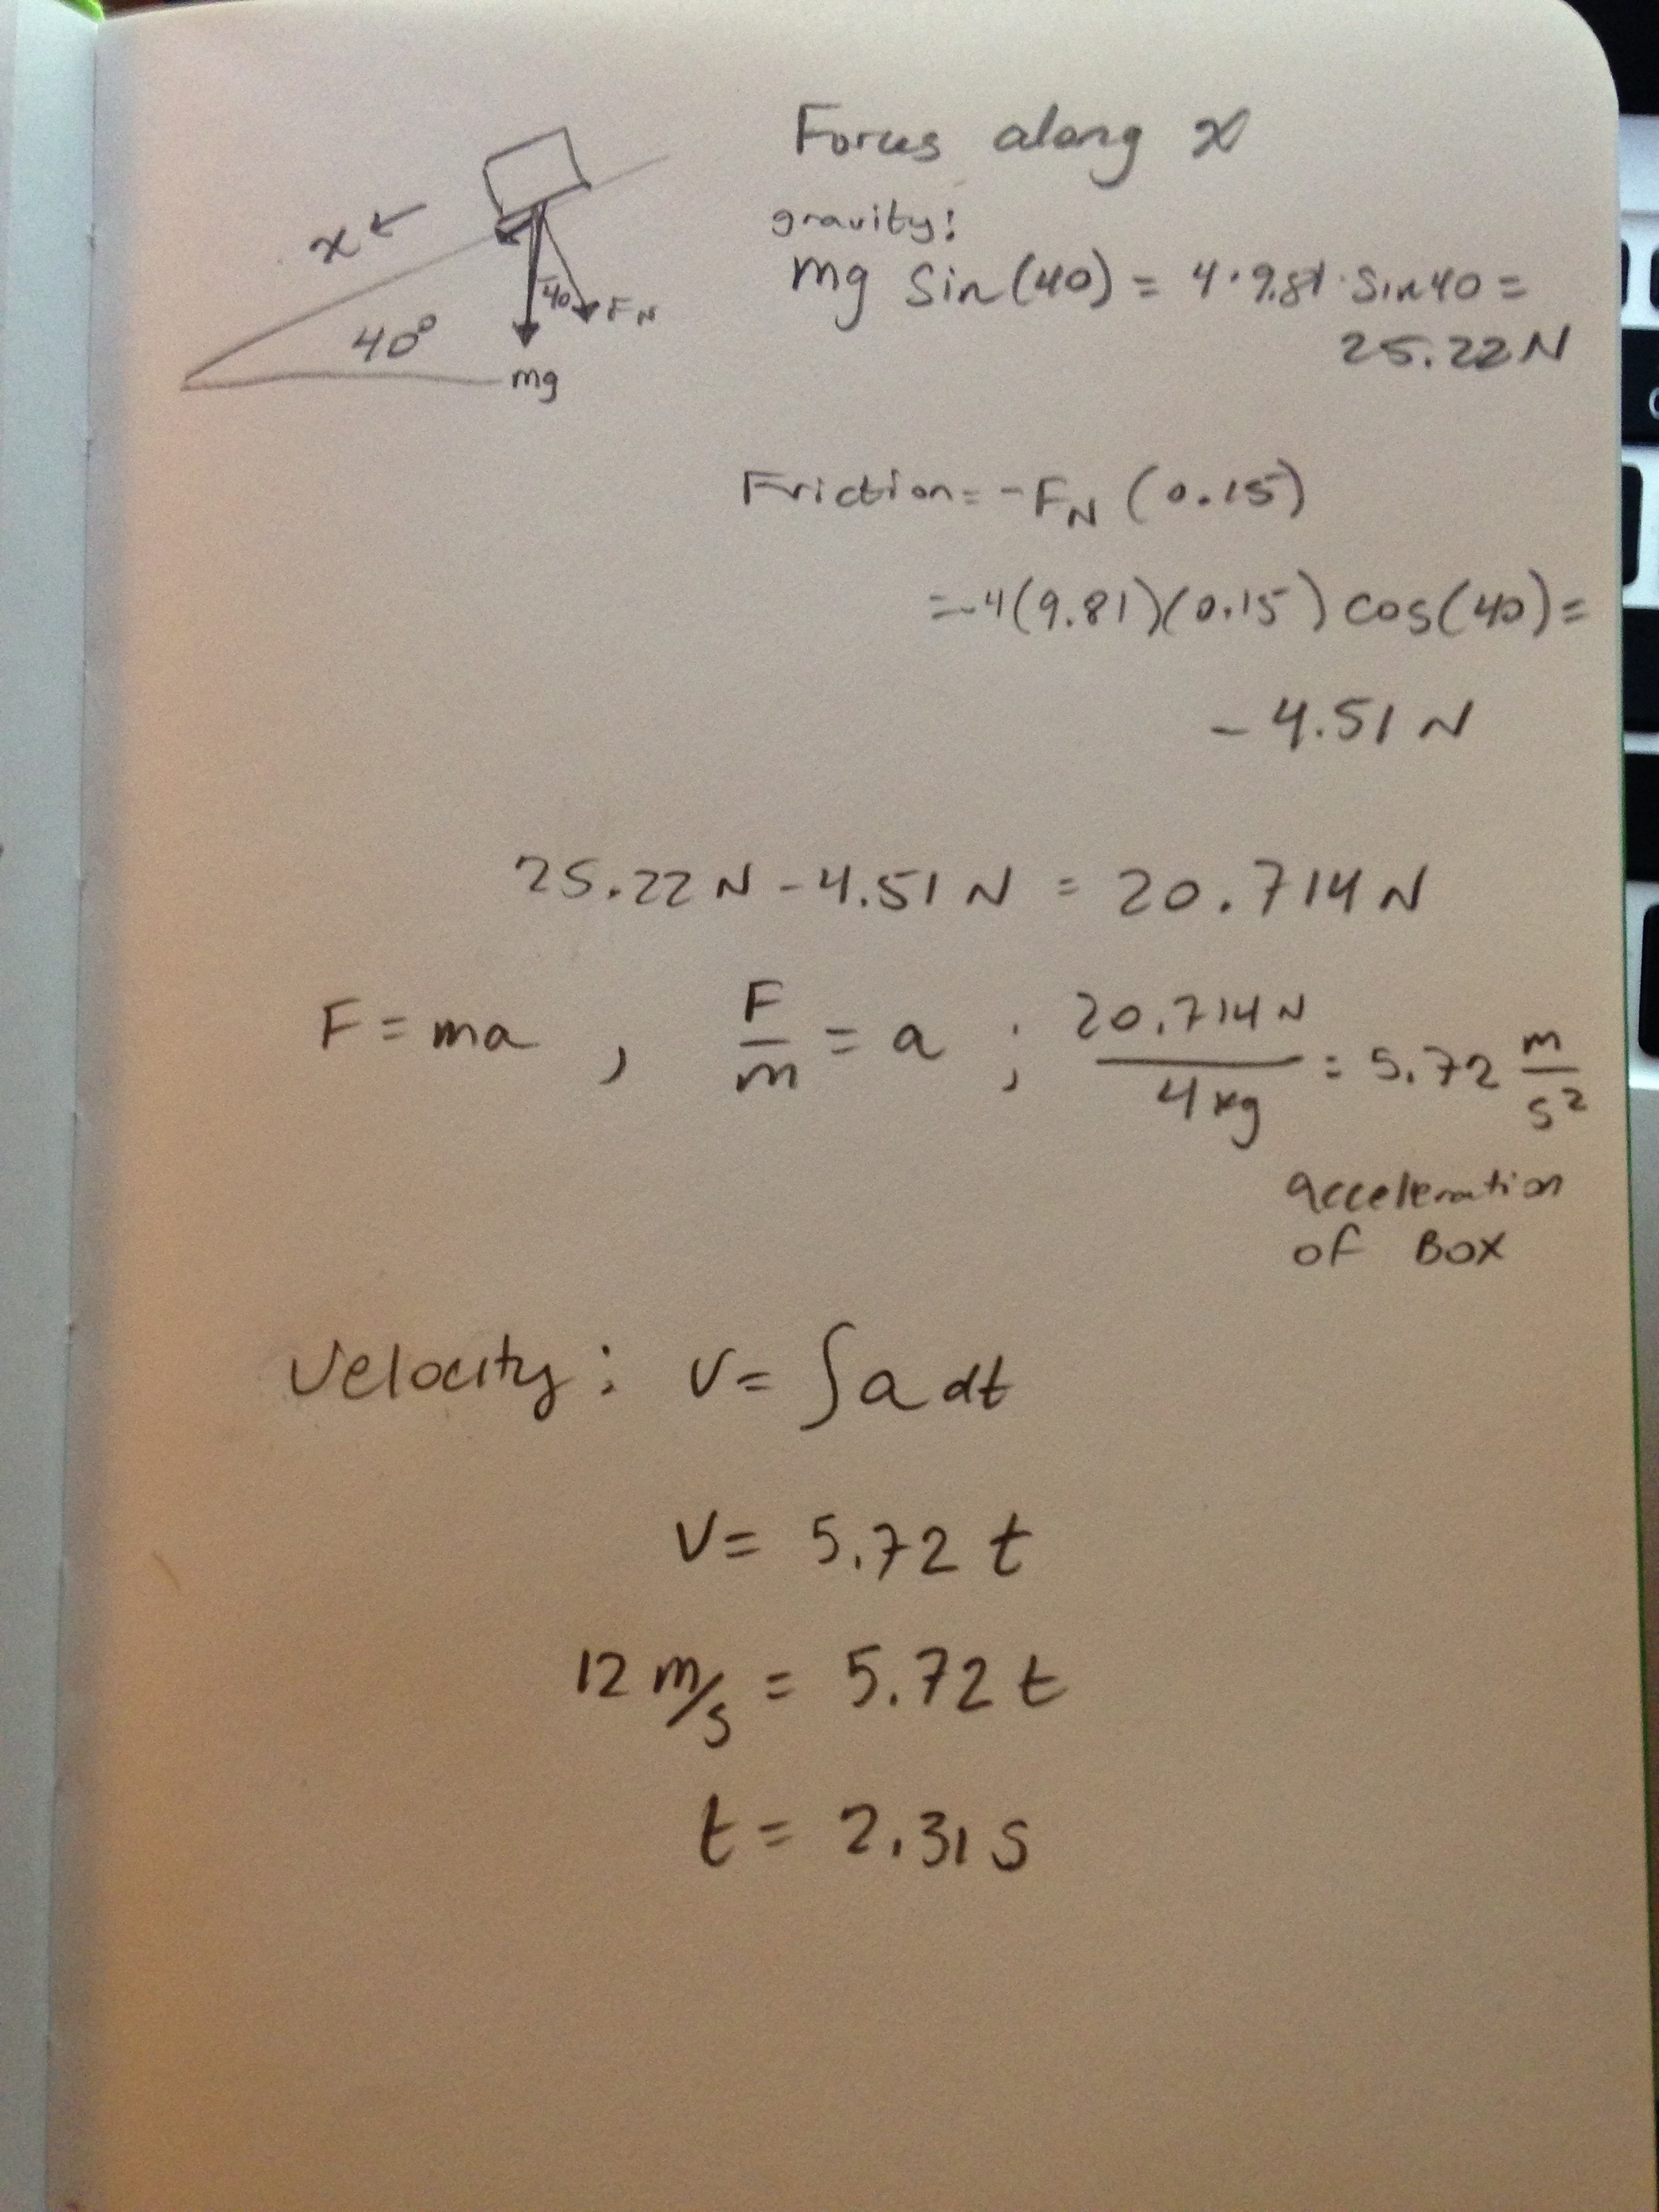 Forces along x
gravity:
mg sin(40) = 4·9.81·Sin40 =
25.22N
x ←
40
FN
40°
mg
Friction = -FN (0.15)
=-4(9.81)(0.15) cos(40)=
-4.51 N
25.22 N - 4.51 N = 20.714 N
F = ma , F/m = a ; 20.714 N/4 kg = 5.72 m/s²
acceleration
of Box
Velocity: v= ∫a dt
V= 5.72 t
12 m/s = 5.72 t
t = 2.31 s